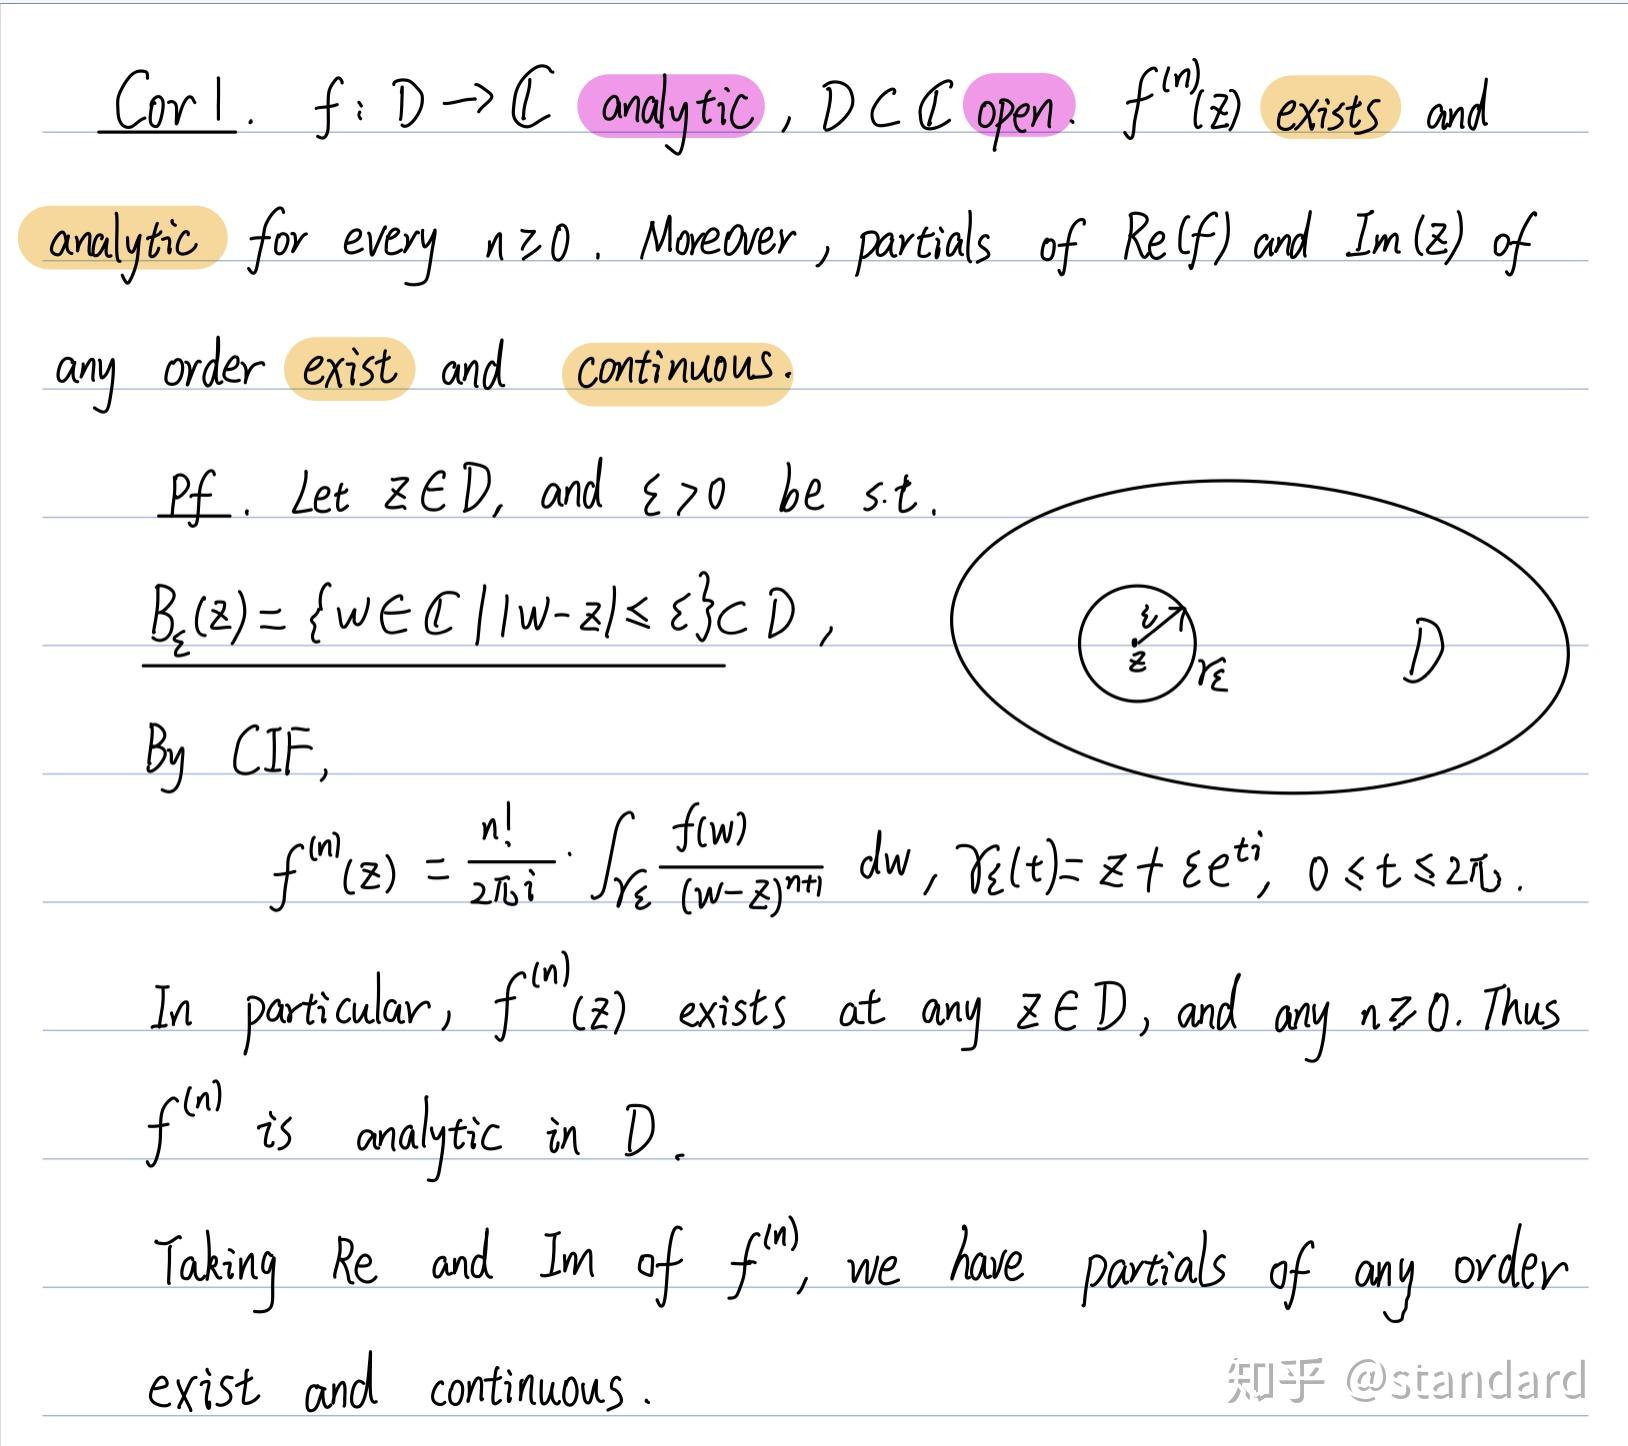 Cor 1. f: D → ℂ analytic, D ⊂ ℂ open. f⁽ⁿ⁾(z) exists and
analytic for every n ≥ 0. Moreover, partials of Re(f) and Im(z) of
any order exist and continuous.
Pf. Let z ∈ D, and ε > 0 be s.t.
B_ε(z) = {w ∈ ℂ | |w - z| ≤ ε} ⊂ D,
ε
z
γ_ε
D
By CIF,
f⁽ⁿ⁾(z) = n!/(2πi) · ∫_{γ_ε} f(w)/(w-z)^{n+1} dw, γ_ε(t) = z + εe^{ti}, 0 ≤ t ≤ 2π.
In particular, f⁽ⁿ⁾(z) exists at any z ∈ D, and any n ≥ 0. Thus
f⁽ⁿ⁾ is analytic in D.
Taking Re and Im of f⁽ⁿ⁾, we have partials of any order
exist and continuous.
知乎 @standard